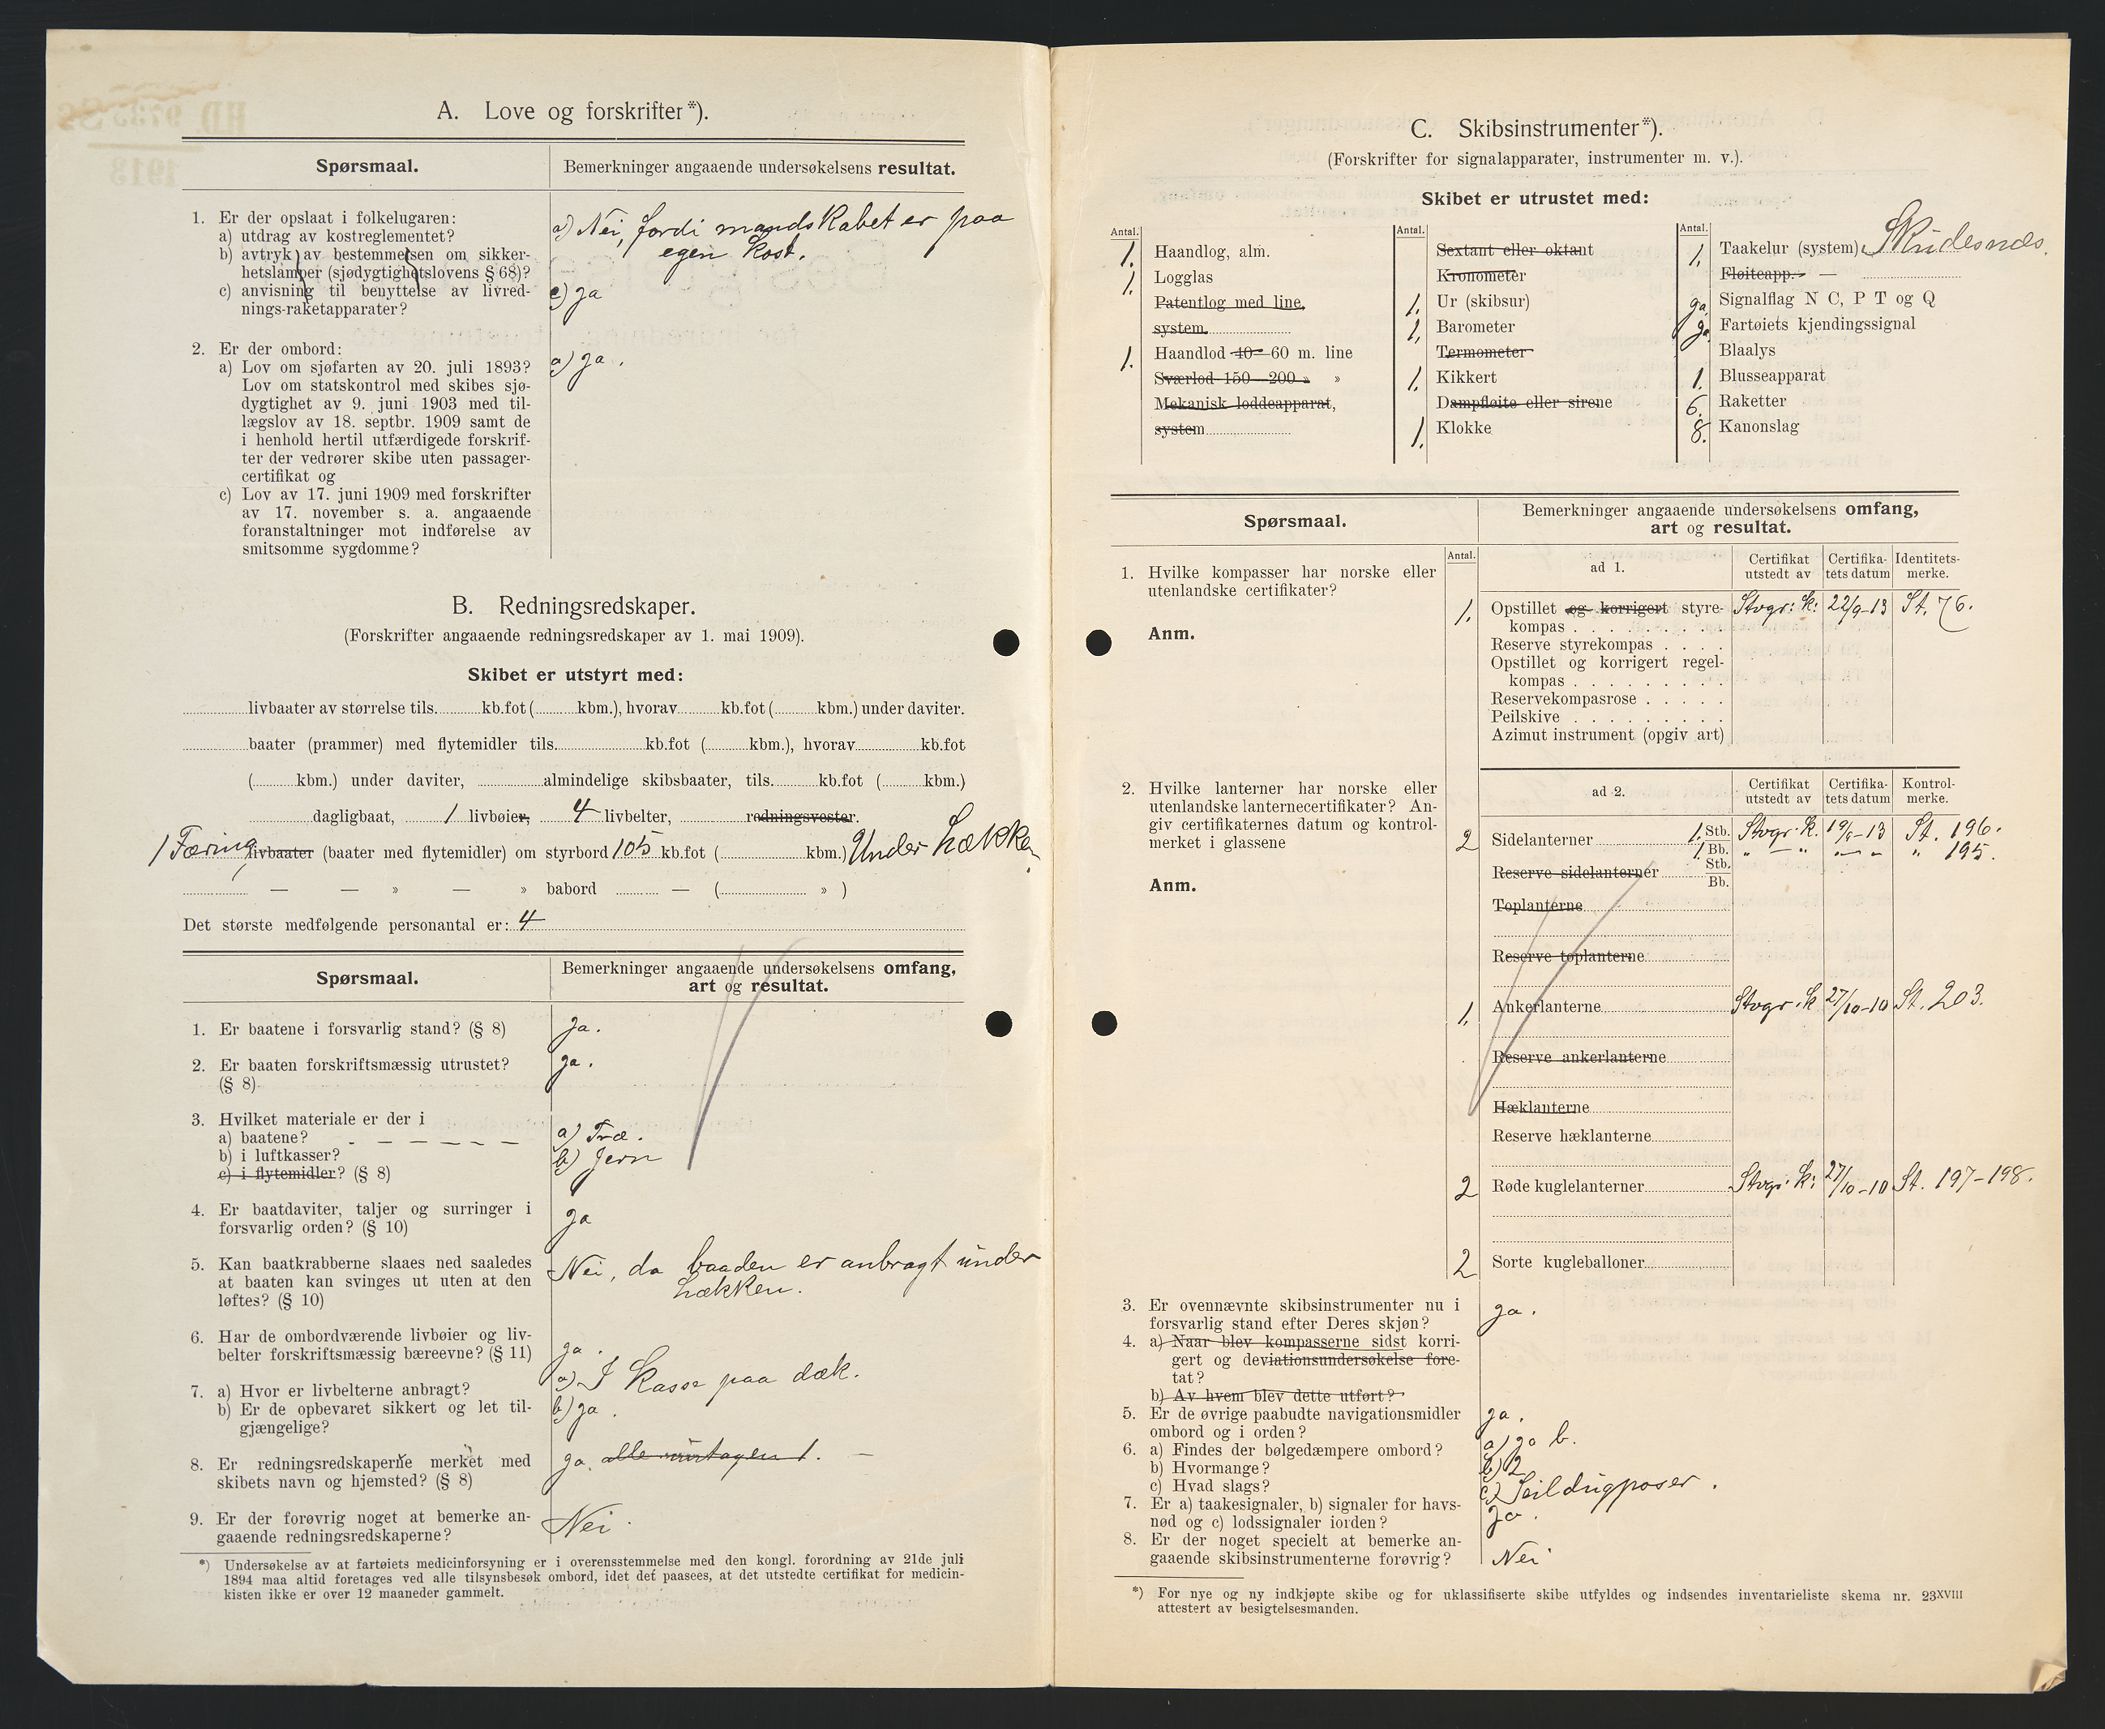 A. Love og forskrifter*).
Spørsmaal.
Bemerkninger angaaende undersøkelsens resultat.
1. Er der opslaat i folkelugaren:
a) utdrag av kostreglementet?
b) avtryk av bestemmelsen om sikker-
hetslamper (sjødygtighetslovens § 68)?
c) anvisning til benyttelse av livred-
nings-raketapparater?
a) Nei, fordi mandskabet er paa
egen kost.
c) ja
2. Er der ombord:
a) Lov om sjøfarten av 20. juli 1893?
Lov om statskontrol med skibes sjø-
dygtighet av 9. juni 1903 med til-
lægslov av 18. septbr. 1909 samt de
i henhold hertil utfærdigede forskrif-
ter der vedrører skibe uten passager-
certifikat og
c) Lov av 17. juni 1909 med forskrifter
av 17. november s. a. angaaende
foranstaltninger mot indførelse av
smitsomme sygdomme?
a) ja.
B. Redningsredskaper.
(Forskrifter angaaende redningsredskaper av 1. mai 1909).
Skibet er utstyrt med:
livbaater av størrelse tils. kb.fot ( kbm.), hvorav kb.fot ( kbm.) under daviter.
baater (prammer) med flytemidler tils. kb.fot ( kbm.), hvorav kb.fot
( kbm.) under daviter, almindelige skibsbaater, tils. kb.fot ( kbm.)
dagligbaat, 1 livbøier, 4 livbelter, redningsvester.
1 Færing livbaater (baater med flytemidler) om styrbord 105 kb.fot ( kbm.) Under Hækken.
— — » — » babord — ( » )
Det største medfølgende personantal er: 4
Spørsmaal.
Bemerkninger angaaende undersøkelsens omfang,
art og resultat.
1. Er baatene i forsvarlig stand? (§ 8)
ja.
2. Er baaten forskriftsmæssig utrustet?
(§ 8)
ja.
3. Hvilket materiale er der i
a) baatene?
b) i luftkasser?
c) i flytemidler? (§ 8)
a) Træ.
b) Jern
4. Er baatdaviter, taljer og surringer i
forsvarlig orden? (§ 10)
ja
5. Kan baatkrabberne slaaes ned saaledes
at baaten kan svinges ut uten at den
løftes? (§ 10)
Nei, da baaden er anbragt under
hækken.
6. Har de ombordværende livbøier og liv-
belter forskriftsmæssig bæreevne? (§ 11)
ja.
7. a) Hvor er livbelterne anbragt?
b) Er de opbevaret sikkert og let til-
gjængelige?
a) I kasse paa dæk.
b) ja.
8. Er redningsredskaperne merket med
skibets navn og hjemsted? (§ 8)
ja.
9. Er der forøvrig noget at bemerke an-
gaaende redningsredskaperne?
Nei.
*) Undersøkelse av at fartøiets medicinforsyning er i overensstemmelse med den kongl. forordning av 21de juli
1894 maa altid foretages ved alle tilsynsbesøk ombord, idet det paasees, at det utstedte certifikat for medicin-
kisten ikke er over 12 maaneder gammelt.
C. Skibsinstrumenter*).
(Forskrifter for signalapparater, instrumenter m. v.).
Skibet er utrustet med:
Antal.
1. Haandlog, alm.
1. Logglas
Patentlog med line,
system
1. Haandlod 40- 60 m. line
Sværlod 150-200 » »
Mekanisk loddeapparat,
system
Antal.
Sextant eller oktant
Kronometer
1. Ur (skibsur)
1. Barometer
Termometer
1. Kikkert
Dampfløite eller sirene
1. Klokke
Antal.
1. Taakelur (system) Skudesnes.
Fløiteapp. —
ja Signalflag N C, P T og Q
ja Fartøiets kjendingssignal
Blaalys
1. Blusseapparat
6. Raketter
8. Kanonslag
Spørsmaal.
Bemerkninger angaaende undersøkelsens omfang,
art og resultat.
Antal.
ad 1.
Certifikat utstedt av
Certifika-tets datum
Identitets-merke.
1. Hvilke kompasser har norske eller
utenlandske certifikater?
Anm.
1. Opstillet og korrigert styre-
kompas Stvgr: K: 22/9-13 St. 76.
Reserve styrekompas
Opstillet og korrigert regel-
kompas
Reservekompasrose
Peilskive
Azimut instrument (opgiv art)
ad 2.
Certifikat utstedt av
Certifika-tets datum
Kontrol-merke.
2. Hvilke lanterner har norske eller
utenlandske lanternecertifikater? An-
giv certifikaternes datum og kontrol-
merket i glassene
Anm.
2 Sidelanterner 1. Stb. Stvgr. K. 19/9-13 St. 196.
1. Bb. " — " " — " " 195.
Reserve sidelanterner Stb.
Bb.
Toplanterne
Reserve toplanterne
1. Ankerlanterne Stvgr. K 27/10-10 St. 203.
Reserve ankerlanterne
Hæklanterne
Reserve hæklanterne
2 Røde kuglelanterner Stvgr. K: 27/10-10 St. 197-198.
2 Sorte kugleballoner
3. Er ovennævnte skibsinstrumenter nu i
forsvarlig stand efter Deres skjøn?
ja.
4. a) Naar blev kompasserne sidst korri-
gert og deviationsundersøkelse fore-
tat?
b) Av hvem blev dette utført?
5. Er de øvrige paabudte navigationsmidler
ombord og i orden?
ja.
6. a) Findes der bølgedæmpere ombord?
b) Hvormange?
c) Hvad slags?
a) ja b.
b) 2
c) Seildugposer.
7. Er a) taakesignaler, b) signaler for havs-
nød og c) lodssignaler iorden?
ja.
8. Er der noget specielt at bemerke an-
gaaende skibsinstrumenterne forøvrig?
Nei
*) For nye og ny indkjøpte skibe og for uklassifiserte skibe utfyldes og indsendes inventarieliste skema nr. 23XVIII
attestert av besigtelsesmanden.